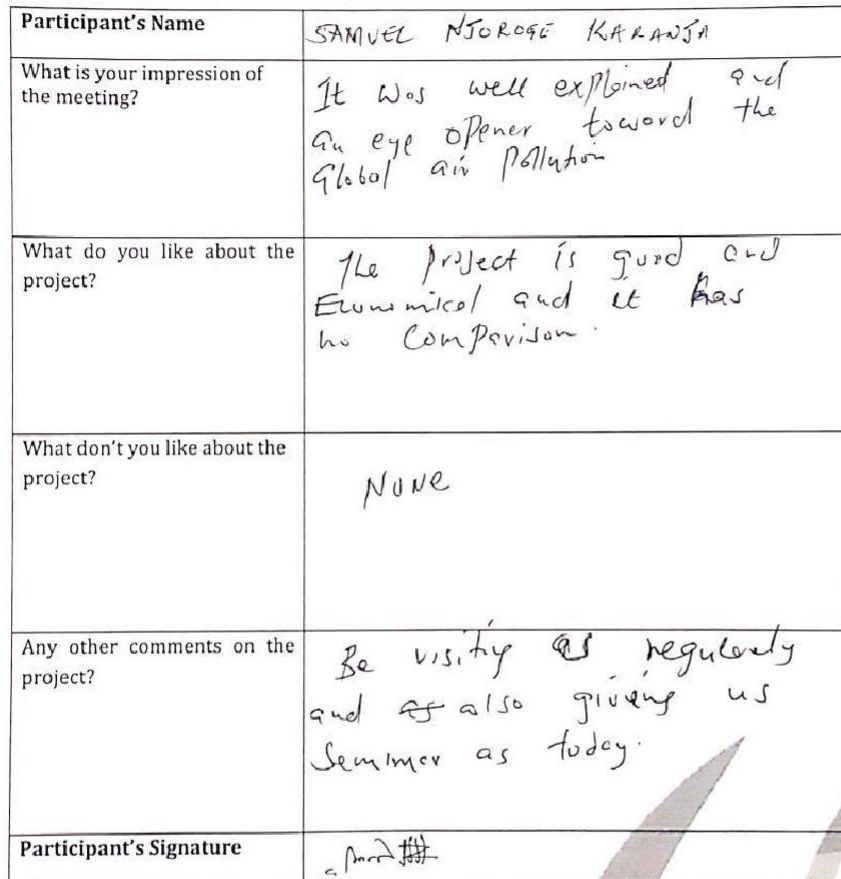 Participant's Name
SAMUEL NJOROGE KARANJA
What is your impression of
the meeting?
It was well explained and
an eye opener toward the
Global air Pollution
What do you like about the
project?
The project is good and
Economical and it has
no Comparison.
What don't you like about the
project?
NONE
Any other comments on the
project?
Be visitig as regularly
and as also giving us
Seminer as today.
Participant's Signature